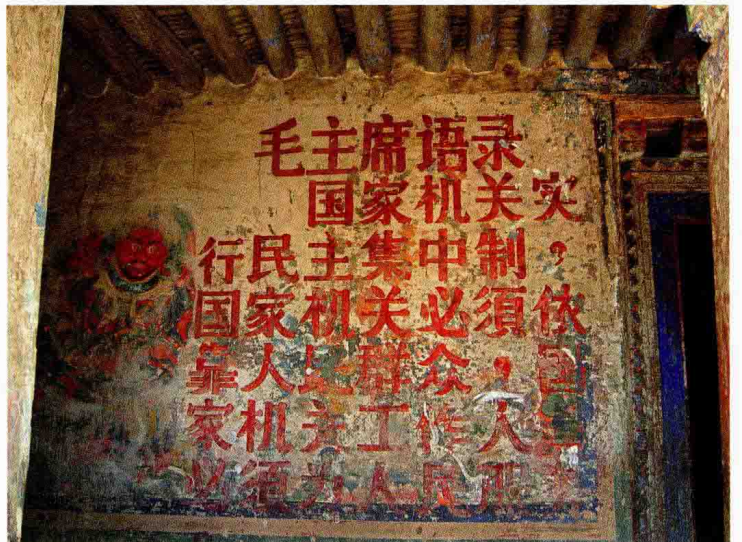 毛主席语录
国家机关实
行民主集中制，
国家机关必須依
靠人民群众，国
家机关工作人
必須为人民服